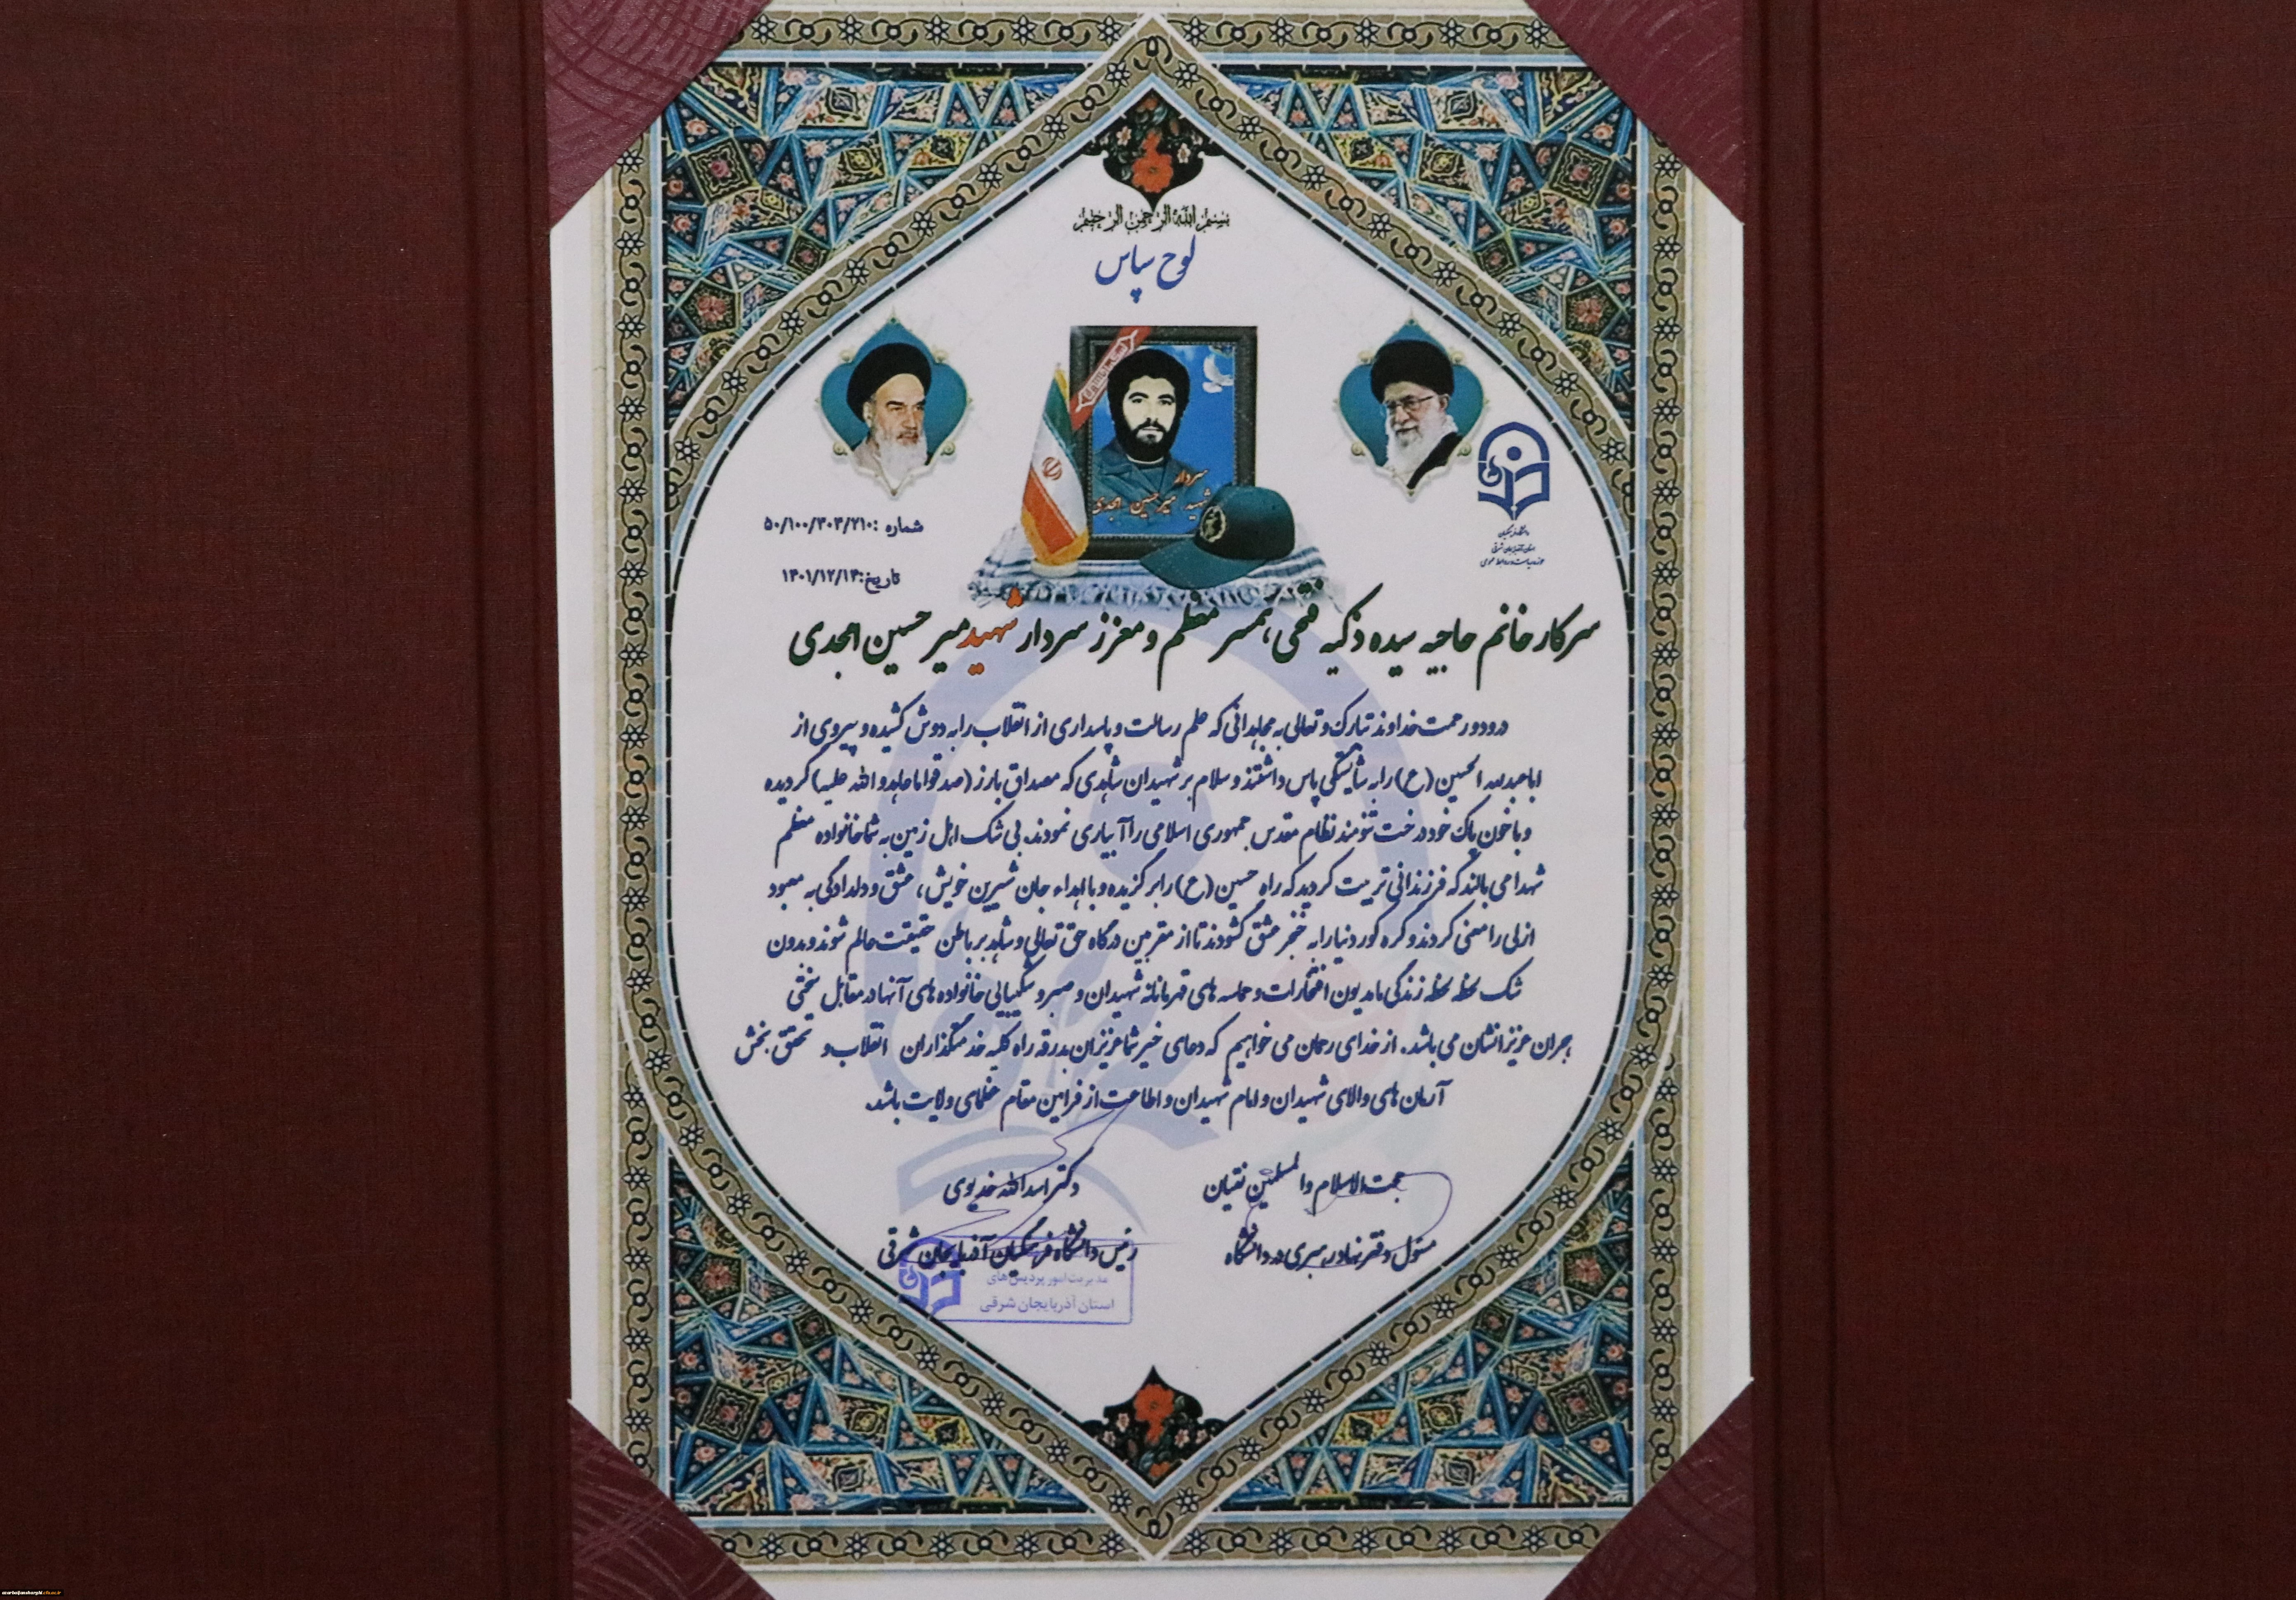 بسم الله الرحمن الرحیم
لوح سپاس
سردار
شهید میرحسین امجدی
شماره :۵۰/۱۰۰/۳۰۳/۲۱۰
تاریخ:۱۴۰۱/۱۲/۱۴
دانشگاه فرهنگیان
استان آذربایجان شرقی
حوزه ریاست و روابط عمومی
سرکار خانم حاجیه سیده ذکیه فتحی، همسر معظم و معزز سردار شهید میر حسین امجدی
درود و رحمت خداوند تبارک و تعالی به مجاهدانی که علم رسالت و پاسداری از انقلاب را به دوش کشیده و پیروی از
اباعبدالله الحسین (ع) را به شایستگی پاس داشتند و سلام بر شهیدان شاهدی که مصداق بارز (صدقوا ما عاهدوا الله علیه) گردیده
و با خون پاک خود درخت تنومند نظام مقدس جمهوری اسلامی را آبیاری نمودند. بی شک اهل زمین به شما خانواده معظم
شهدا می بالند که فرزندانی تربیت کردید که راه حسین (ع) را برگزیده و با اهداء جان شیرین خویش، عشق و دلدادگی به معبود
ازلی را معنی کردند و گره کور دنیا را به خنجر عشق گشودند تا از مقربین درگاه حق تعالی و شاهد بر باطن حقیقت عالم شوند و بدون
شک لحظه لحظه زندگی ما مدیون افتخارات و حماسه های قهرمانانه شهیدان و صبر و شکیبایی خانواده های آنها در مقابل سختی
هجران عزیزانشان می باشد. از خدای رحمان می خواهیم که دعای خیر شما عزیزان بدرقه راه کلیه خدمتگذاران انقلاب و تحقق بخش
آرمان های والای شهیدان و امام شهیدان و اطاعت از فرامین مقام عظمای ولایت باشد.
حجت الاسلام و المسلمین نقیان
مسئول دفتر نهاد رهبری در دانشگاه
دکتر اسدالله خدیوی
رئیس دانشگاه فرهنگیان آذربایجان شرقی
مدیریت امور پردیس های
استان آذربایجان شرقی